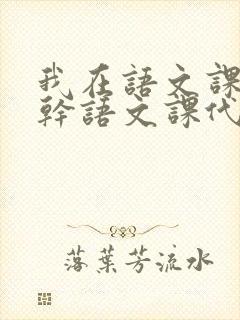 我在語文課
幹語文課代
落葉芳流水